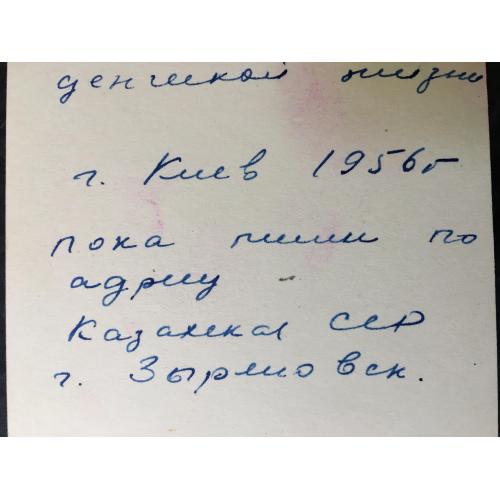 денческой жизни
г. Киев 1956г
пока пиши по
адресу
Казахская ССР
г. Зыряновск.